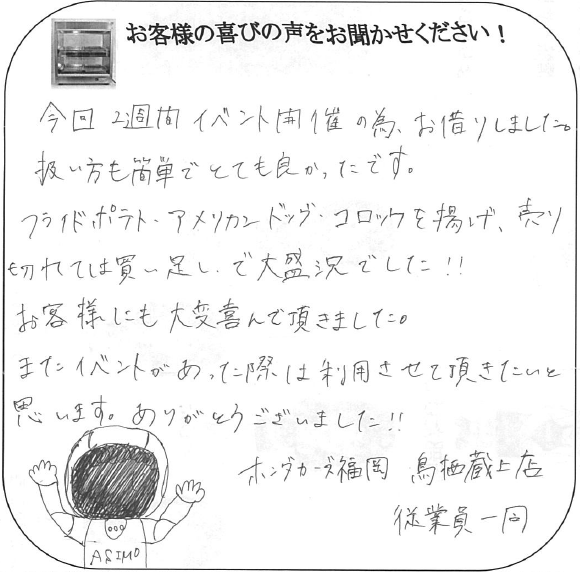 お客様の喜びの声をお聞かせください!
今回 2週間 イベント開催の為、お借りしました。
扱い方も簡単でとても良かったです。
フライドポテト・アメリカンドッグ・コロッケを揚げ、売り
切れては買い足し、で大盛況でした!!
お客様にも大変喜んで頂きました。
またイベントがあった際は利用させて頂きたいと
思います。ありがとうございました!!
ホンダカーズ福岡 鳥栖蔵上店
従業員一同
ASIMO